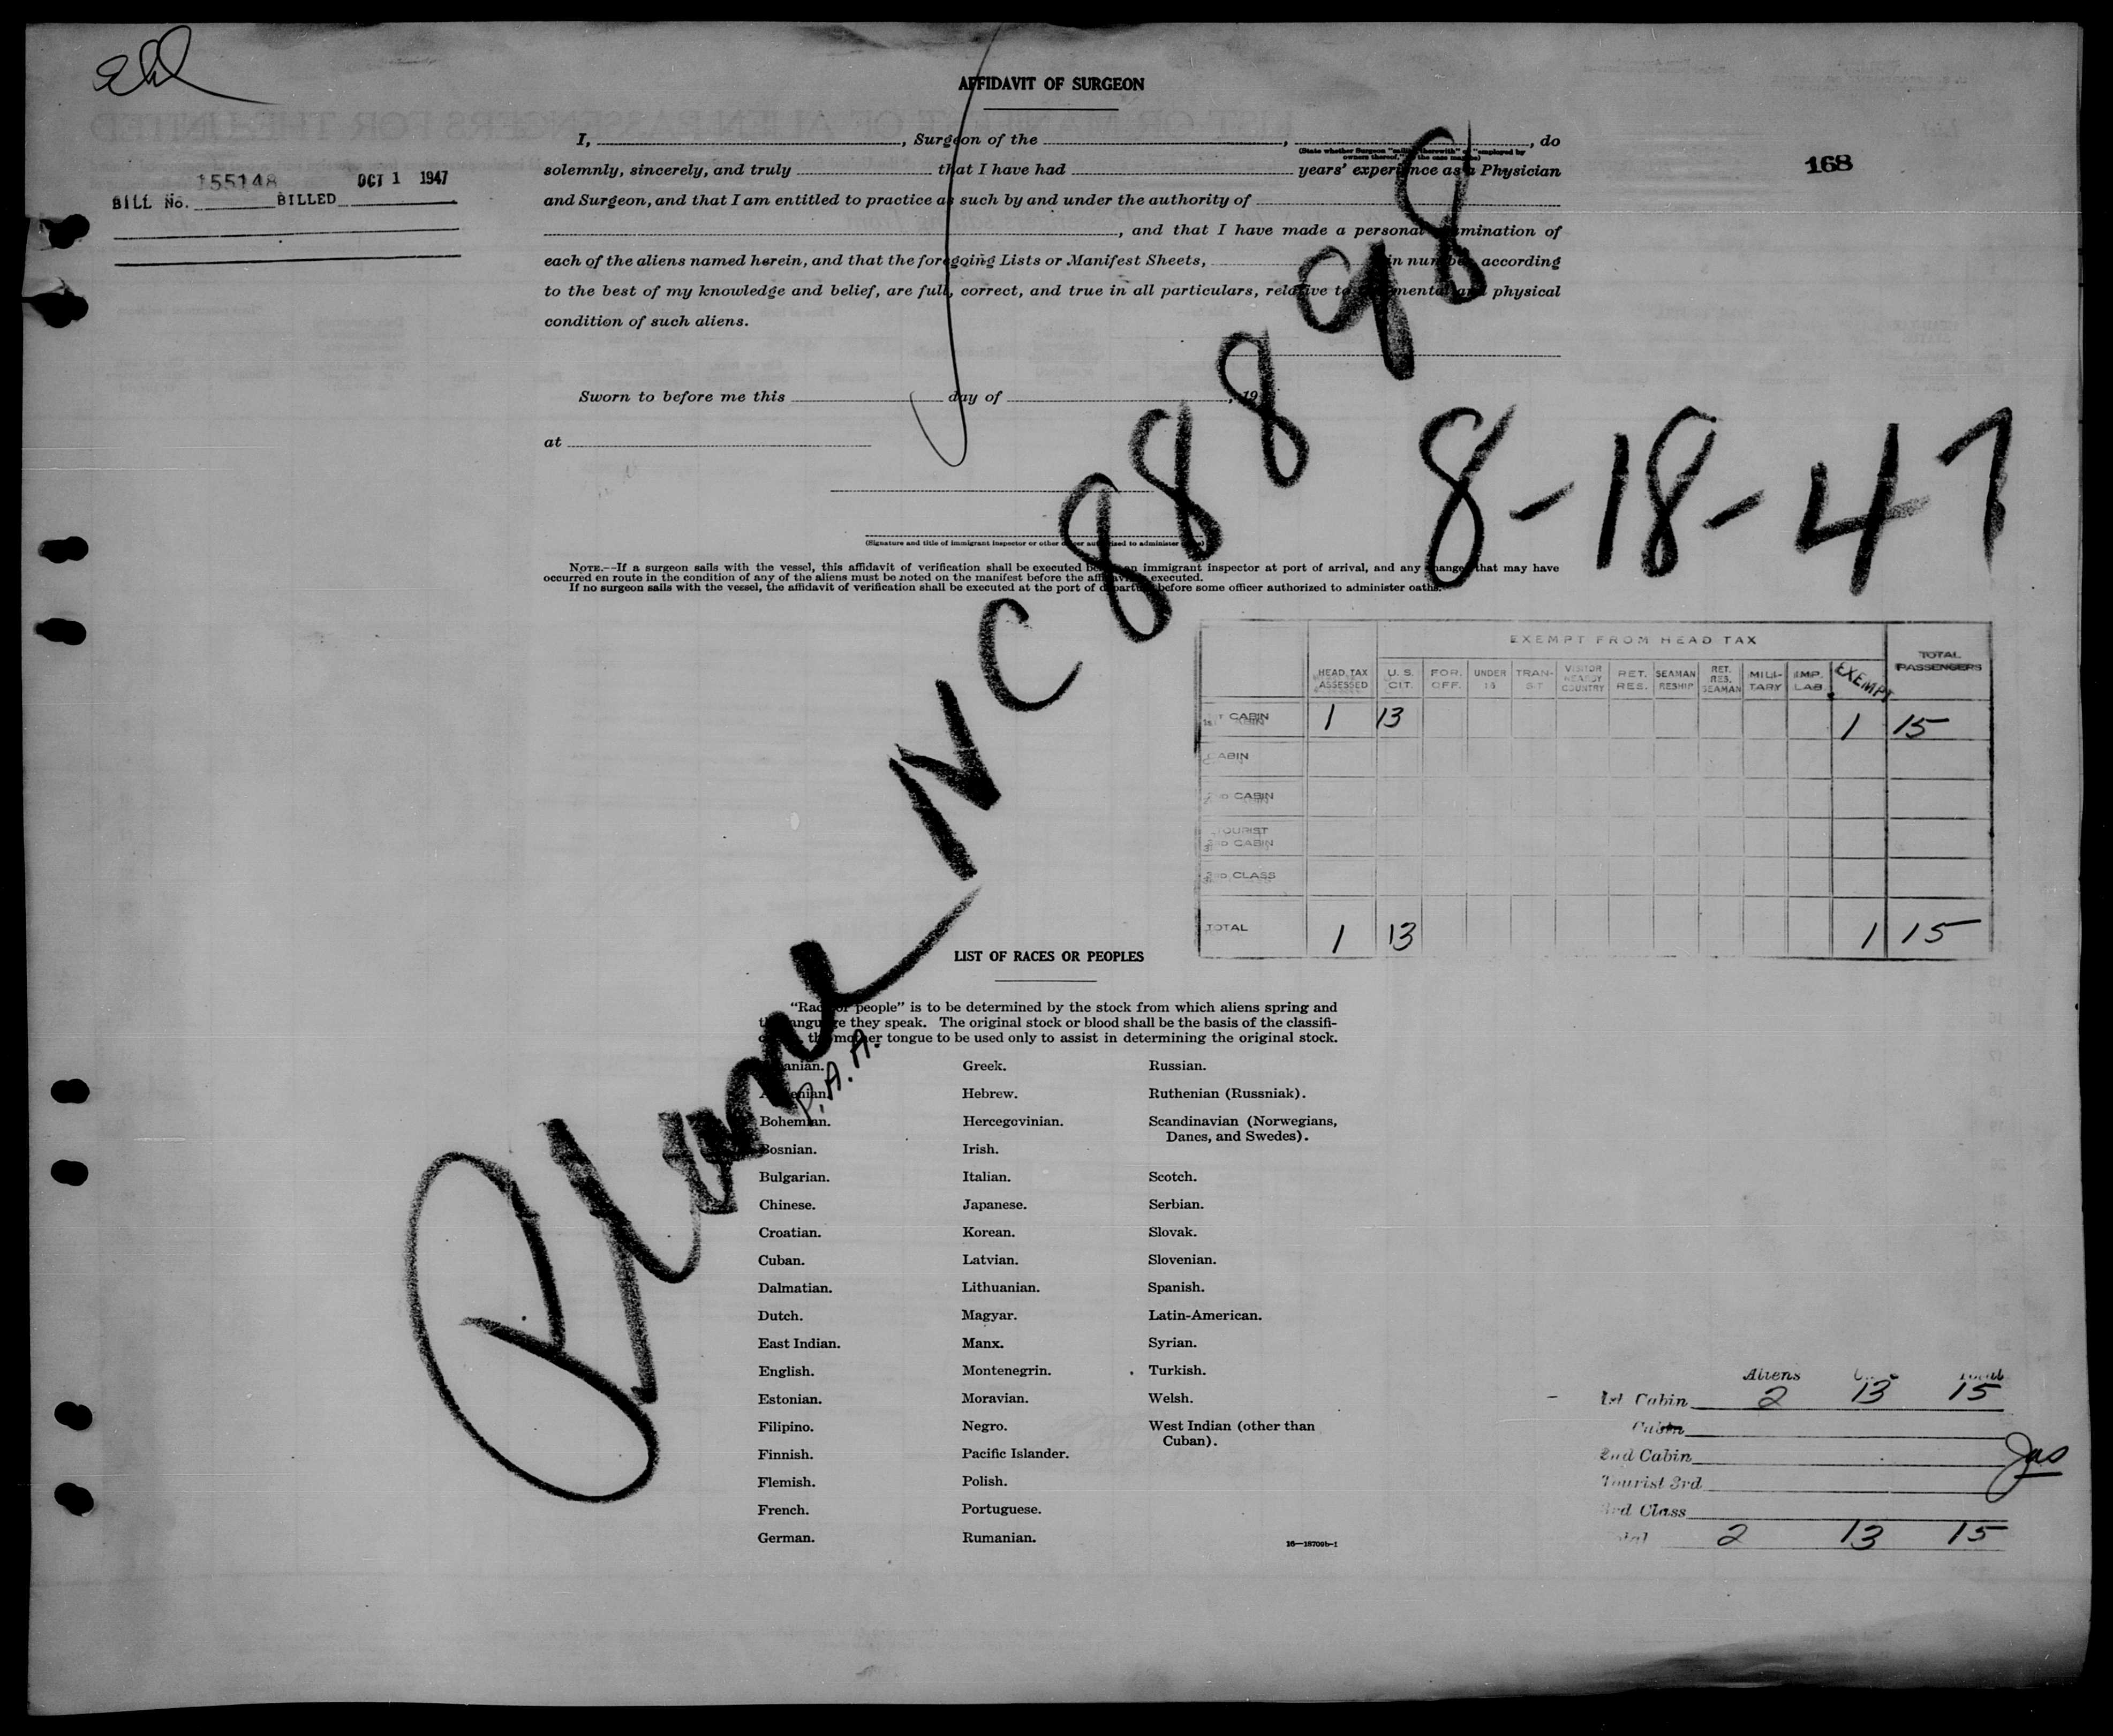 AFFIDAVIT OF SURGEON
I, , Surgeon of the , , do
(State whether Surgeon "sailing therewith" or "employed by
owners thereof," as the case may be)
solemnly, sincerely, and truly that I have had years' experience as a Physician
and Surgeon, and that I am entitled to practice as such by and under the authority of
, and that I have made a personal examination of
each of the aliens named herein, and that the foregoing Lists or Manifest Sheets, in number, according
to the best of my knowledge and belief, are full, correct, and true in all particulars, relative to the mental and physical
condition of such aliens.
168
155148 OCT 1 1947
BILL No. BILLED
Sworn to before me this day of , 19
at
(Signature and title of immigrant inspector or other officer authorized to administer oaths)
NOTE.--If a surgeon sails with the vessel, this affidavit of verification shall be executed before an immigrant inspector at port of arrival, and any changes that may have
occurred en route in the condition of any of the aliens must be noted on the manifest before the affidavit is executed.
If no surgeon sails with the vessel, the affidavit of verification shall be executed at the port of departure before some officer authorized to administer oaths.
Plane NC 88898
P.A.A.
8-18-47
EXEMPT FROM HEAD TAX
HEAD TAX ASSESSED U. S. CIT. FOR. OFF. UNDER 16 TRANSIT VISITOR NEARBY COUNTRY RET. RES. SEAMAN RESHIP RET. RES. SEAMAN MILITARY IMP. LAB. EXEMPT TOTAL PASSENGERS
1ST CABIN 1 13 1 15
CABIN
2ND CABIN
TOURIST
3RD CABIN
3RD CLASS
TOTAL 1 13 1 15
LIST OF RACES OR PEOPLES
"Race or people" is to be determined by the stock from which aliens spring and
the language they speak. The original stock or blood shall be the basis of the classifi-
cation, the mother tongue to be used only to assist in determining the original stock.
Albanian.
Armenian.
Bohemian.
Bosnian.
Bulgarian.
Chinese.
Croatian.
Cuban.
Dalmatian.
Dutch.
East Indian.
English.
Estonian.
Filipino.
Finnish.
Flemish.
French.
German.
Greek.
Hebrew.
Hercegovinian.
Irish.
Italian.
Japanese.
Korean.
Latvian.
Lithuanian.
Magyar.
Manx.
Montenegrin.
Moravian.
Negro.
Pacific Islander.
Polish.
Portuguese.
Rumanian.
Russian.
Ruthenian (Russniak).
Scandinavian (Norwegians,
Danes, and Swedes).
Scotch.
Serbian.
Slovak.
Slovenian.
Spanish.
Latin-American.
Syrian.
Turkish.
Welsh.
West Indian (other than
Cuban).
16—18709b-1
Aliens Total
1st Cabin 2 13 15
Cabin
2nd Cabin
Tourist 3rd
3rd Class
Total 2 13 15